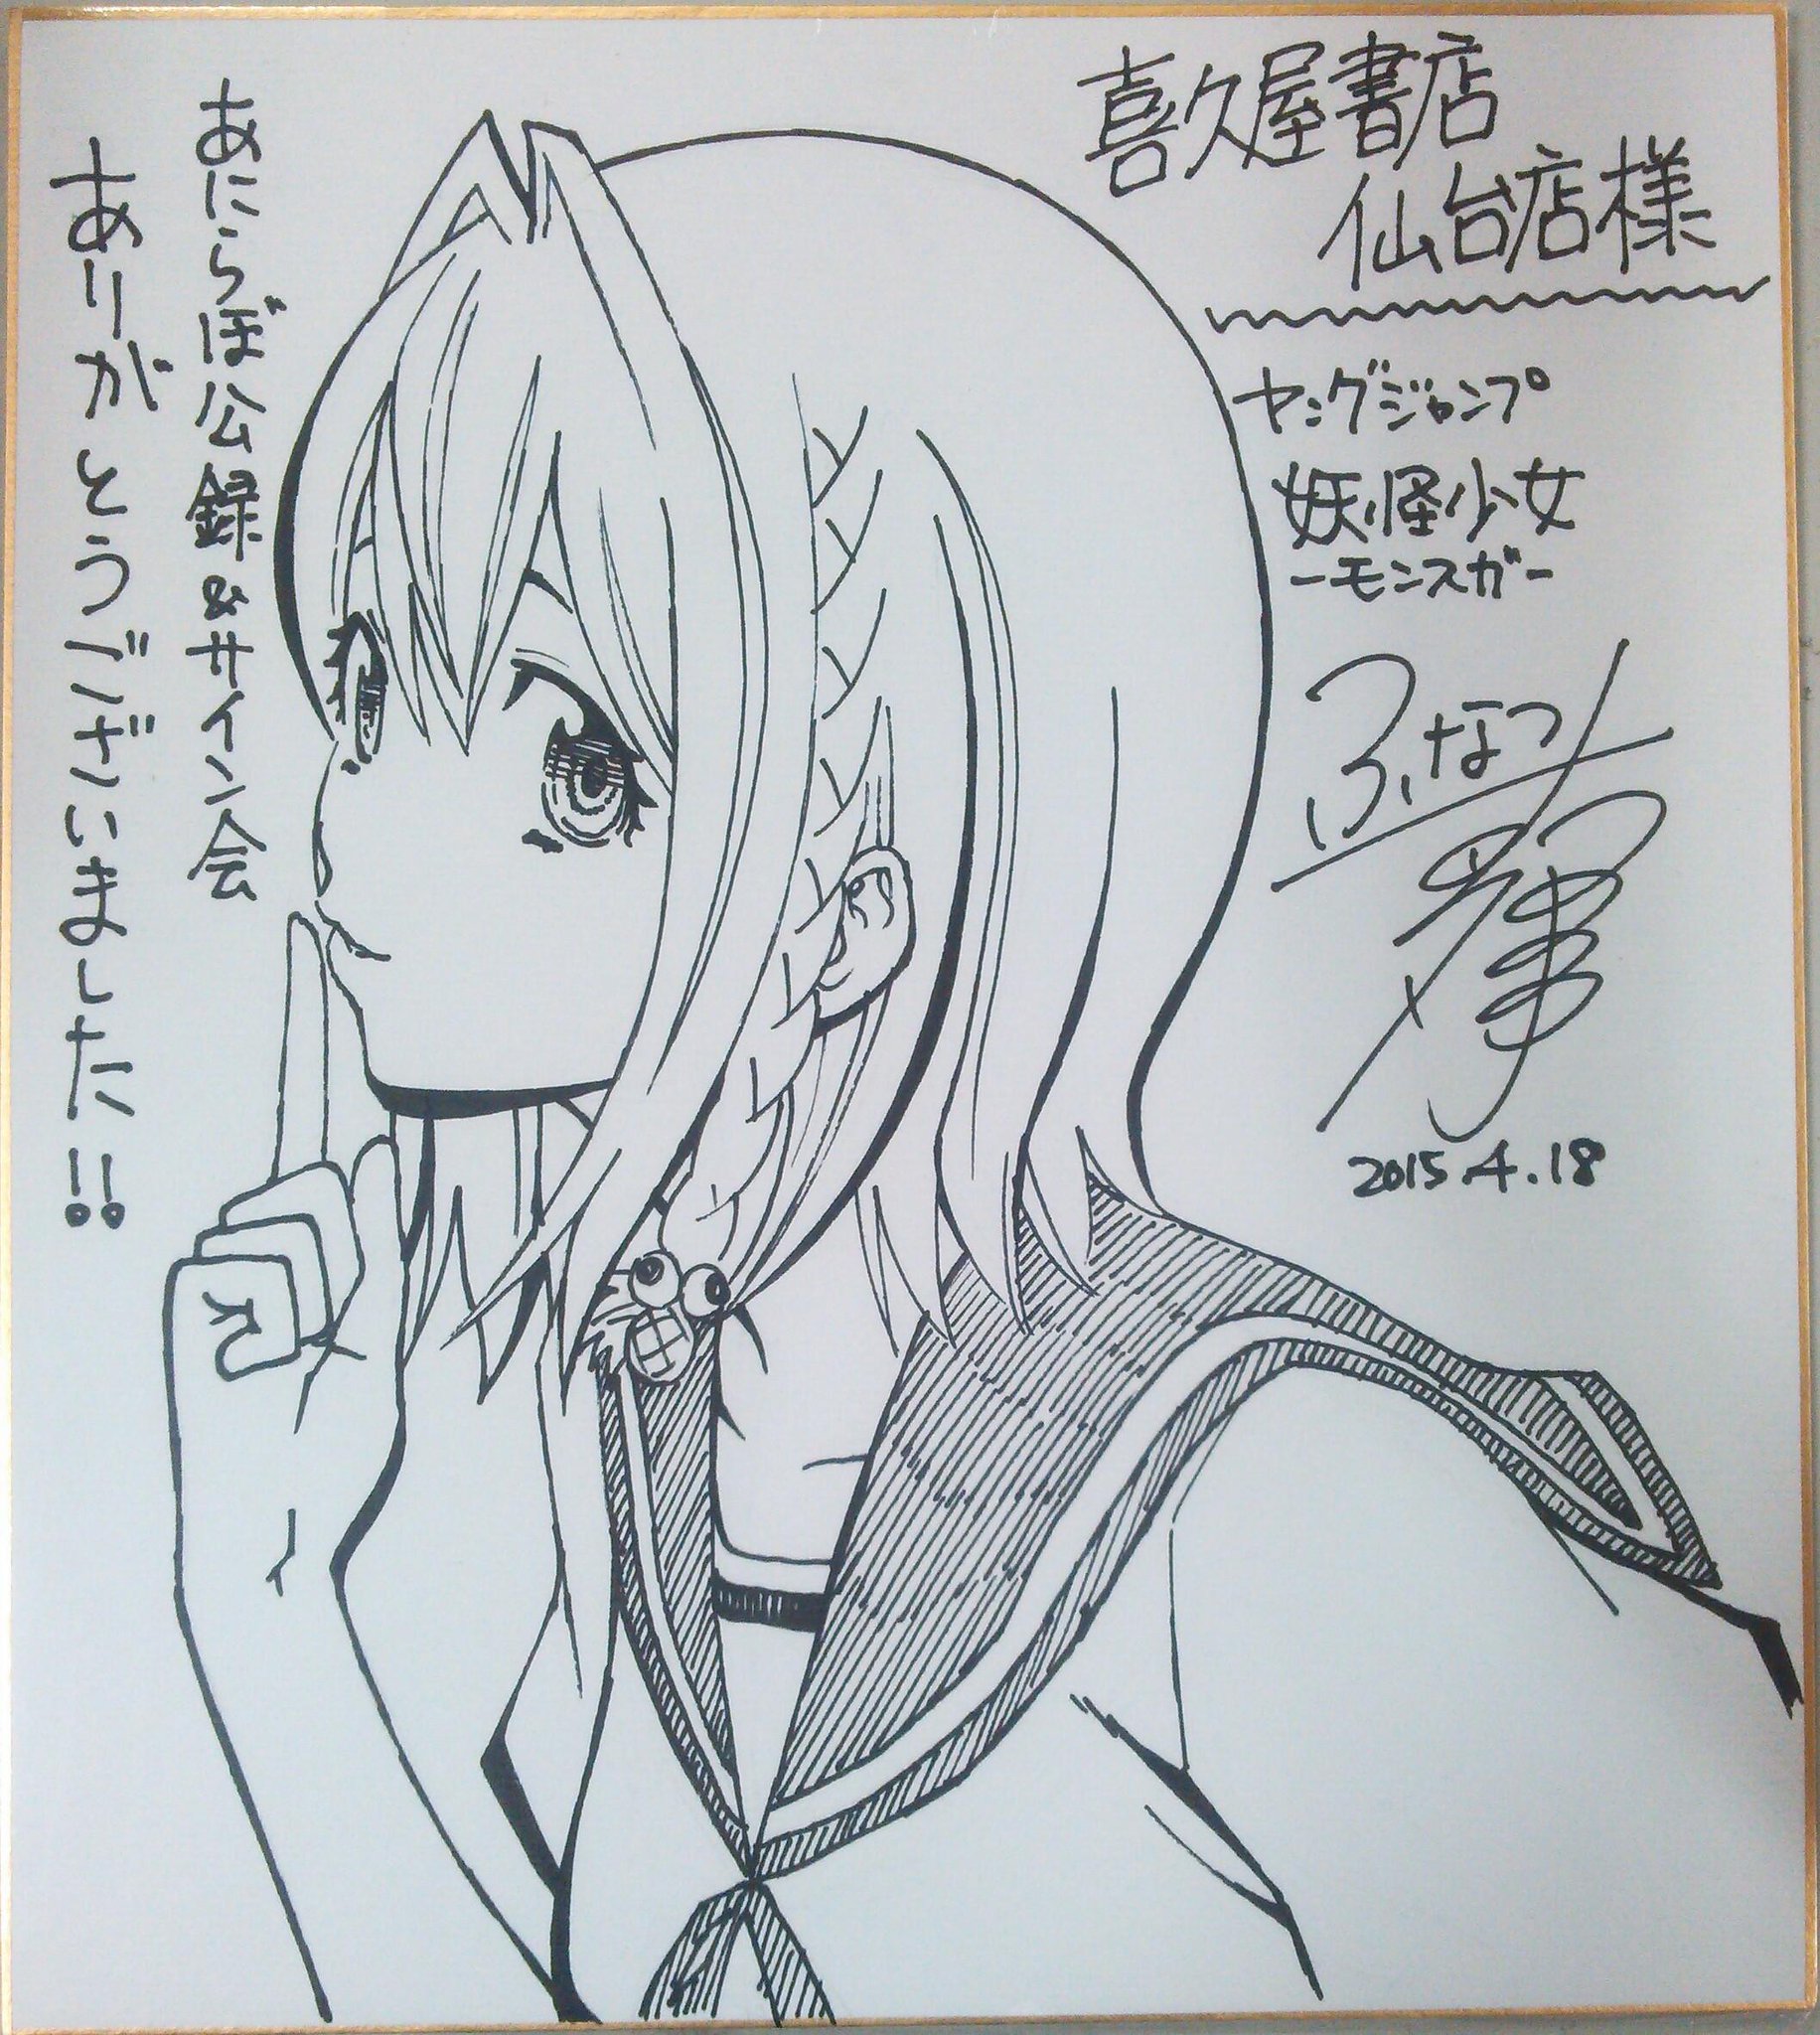 喜久屋書店
仙台店様
ヤングジャンプ
妖怪少女
ーモンスガー
ふなつ
2015.4.18
あにらぼ公録&サイン会
ありがとうございました!!